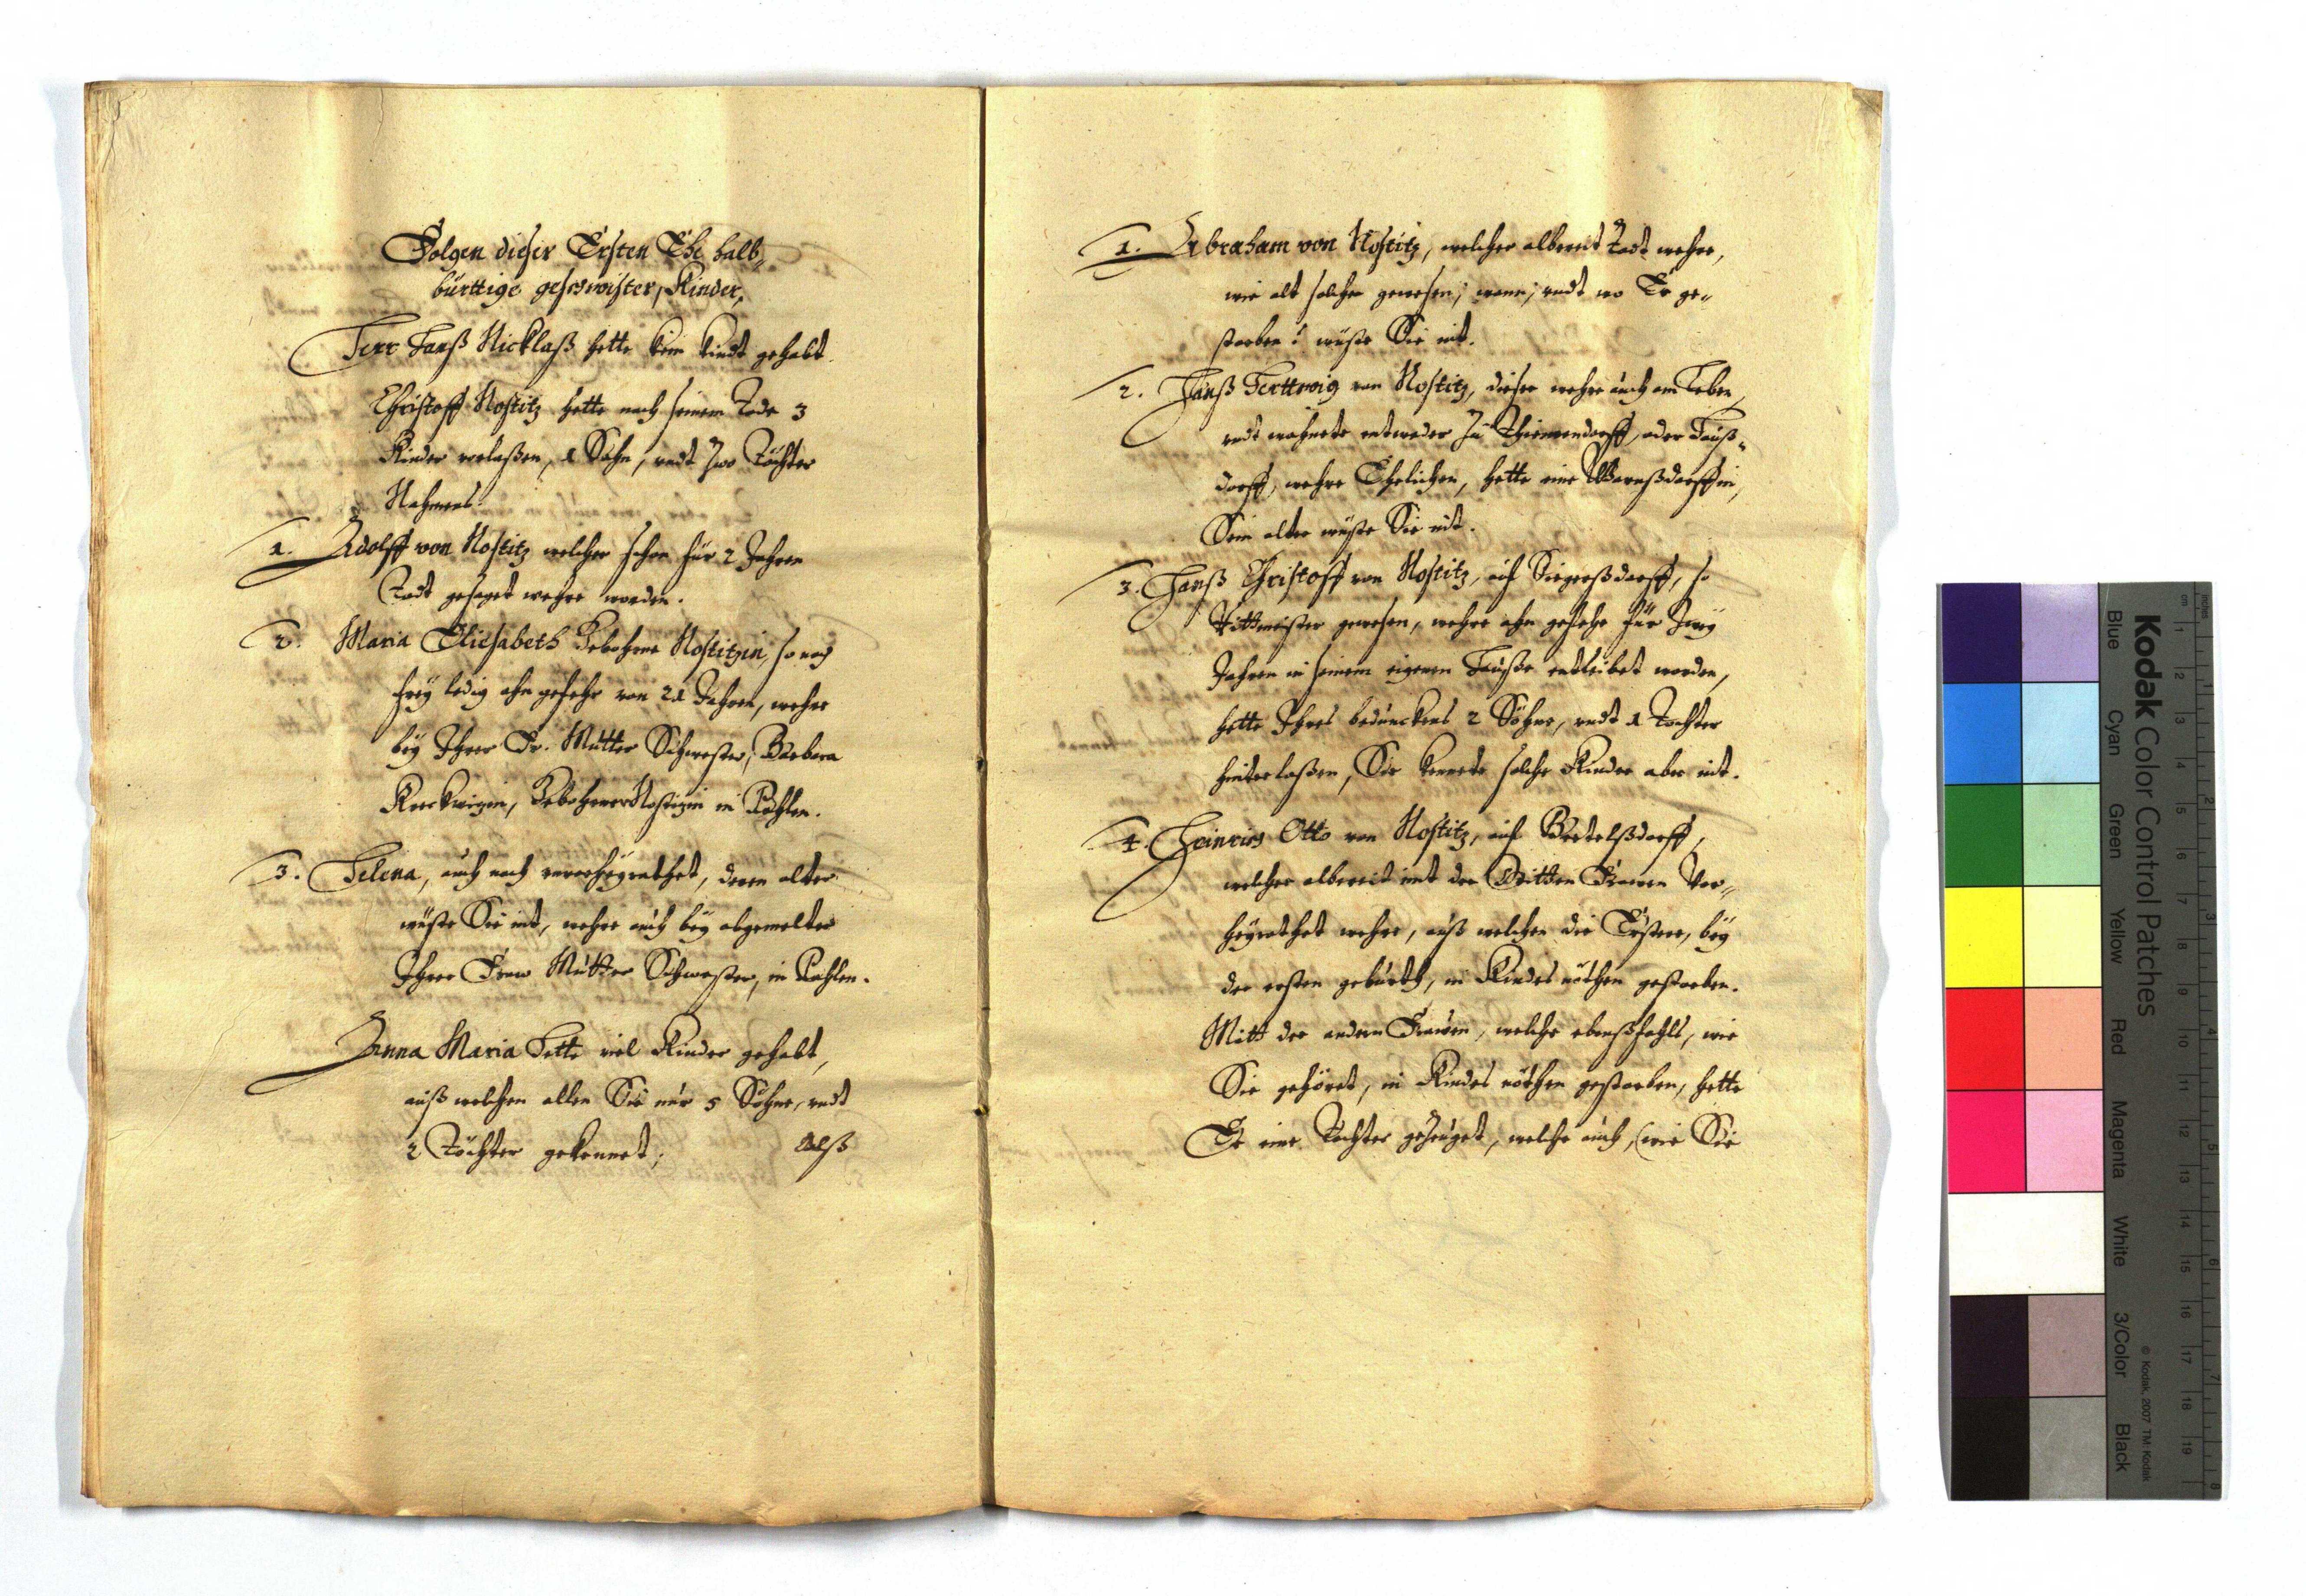 Folgen dieser Ersten Ehe halb„
bürttige geschwister, Kinder,
Herr Hanß Nicklaß hette kein kindt gehabt.
Christoff Nostitz hette nach seinem Tode 3
Kinder verlaßen, 1 Sohn, undt zwo Töchter
Nahmens.
1. Adolff von Nostitz welcher schon für 2 Jahren
Todt gesaget wehre worden.
2. Maria Eliesabeth Gebohrne Nostitzin, so noch
frey ledig ohn gefehr von 21 Jahren, wehre
bey Ihrer Fr. Mutter Schwester, Barbara
Gebohrner Nostizin in
3. Helena, auch noch unverheyrathet, deren alter
wuste Sie nit, wehre auch bey obgemelter
Ihrer Fraw Mutter Schwester, in
Anna Maria Hette viel Kinder gehabt,
auß welchen allen Sie nur 5 Söhne, undt
2 Töchter gekennet; Alß
1. Abraham von Nostitz, welcher albereit Todt wehre,
wie alt solcher gewesen; wenn; undt wo Er ge„
storben? wuste Sie nit.
2. Hanß Herttwig von Nostitz, dieser wehre auch am Leben,
undt wohnete entweder Zu Thiemendorff, oder Hauß„
dorff, wehre Ehelichen, hette eine Warnßdorffin,
Sein alter wuste Sie nit.
3. Hanß Christoff von Nostitz, auf Siegerßdorff, so
Rittmeister gewesen, wehre ohn gefehr für Zwey
Jahren in seinem eigenen Hauße entleibet worden,
hette Ihres bedünckens 2 Söhne, undt 1 Tochter
hinterlaßen, Sie kennete solche Kinder aber nit.
4. Heinrich Otto von Nostitz, auf Bertelßdorff,
welcher albereit mit der Dritten Frawen Ver„
heyrathet wehre, auß welchen die Erstere, bey
der ersten geburth, in Kindes nöthen gestorben.
Mitt der andern Frawen, welche ebenßfahls, wie
Sie gehöret, in Kindes nöthen gestorben, hette
Er eine Tochter gezeuget, welche auch, (wie Sie
Kodak Color Control Patches
Blue Cyan Green Yellow Red Magenta White 3/Color Black
© Kodak, 2007 TM: Kodak
inches 1 2 3 4 5 6 7 8
cm 1 2 3 4 5 6 7 8 9 10 11 12 13 14 15 16 17 18 19